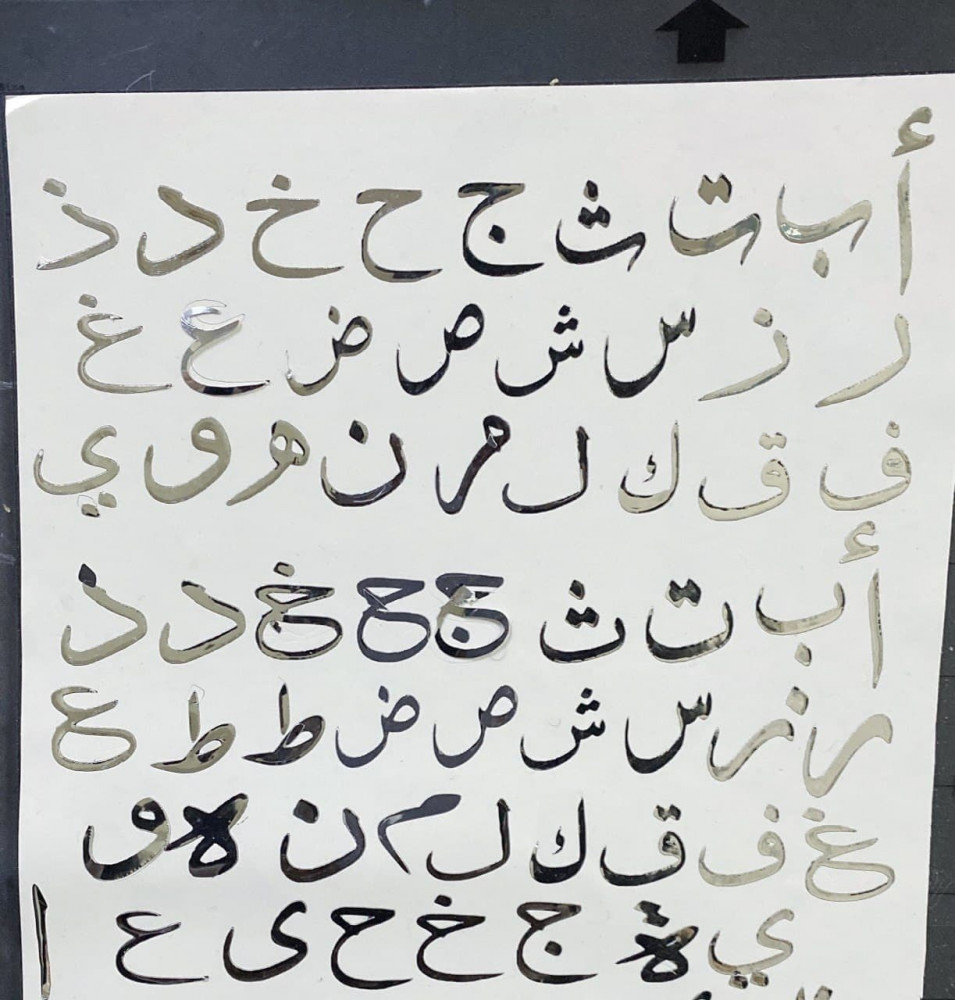 أ ب ت ث ج ح خ د ذ
ر ز س ش ص ض ع غ
ف ق ك ل م ن ه و ي
أ ب ت ث ج ح خ د ذ
ر ز س ش ص ض ط ط ع
غ ف ق ك ل م ن ه و
ي ة ج خ ح ى ع ا